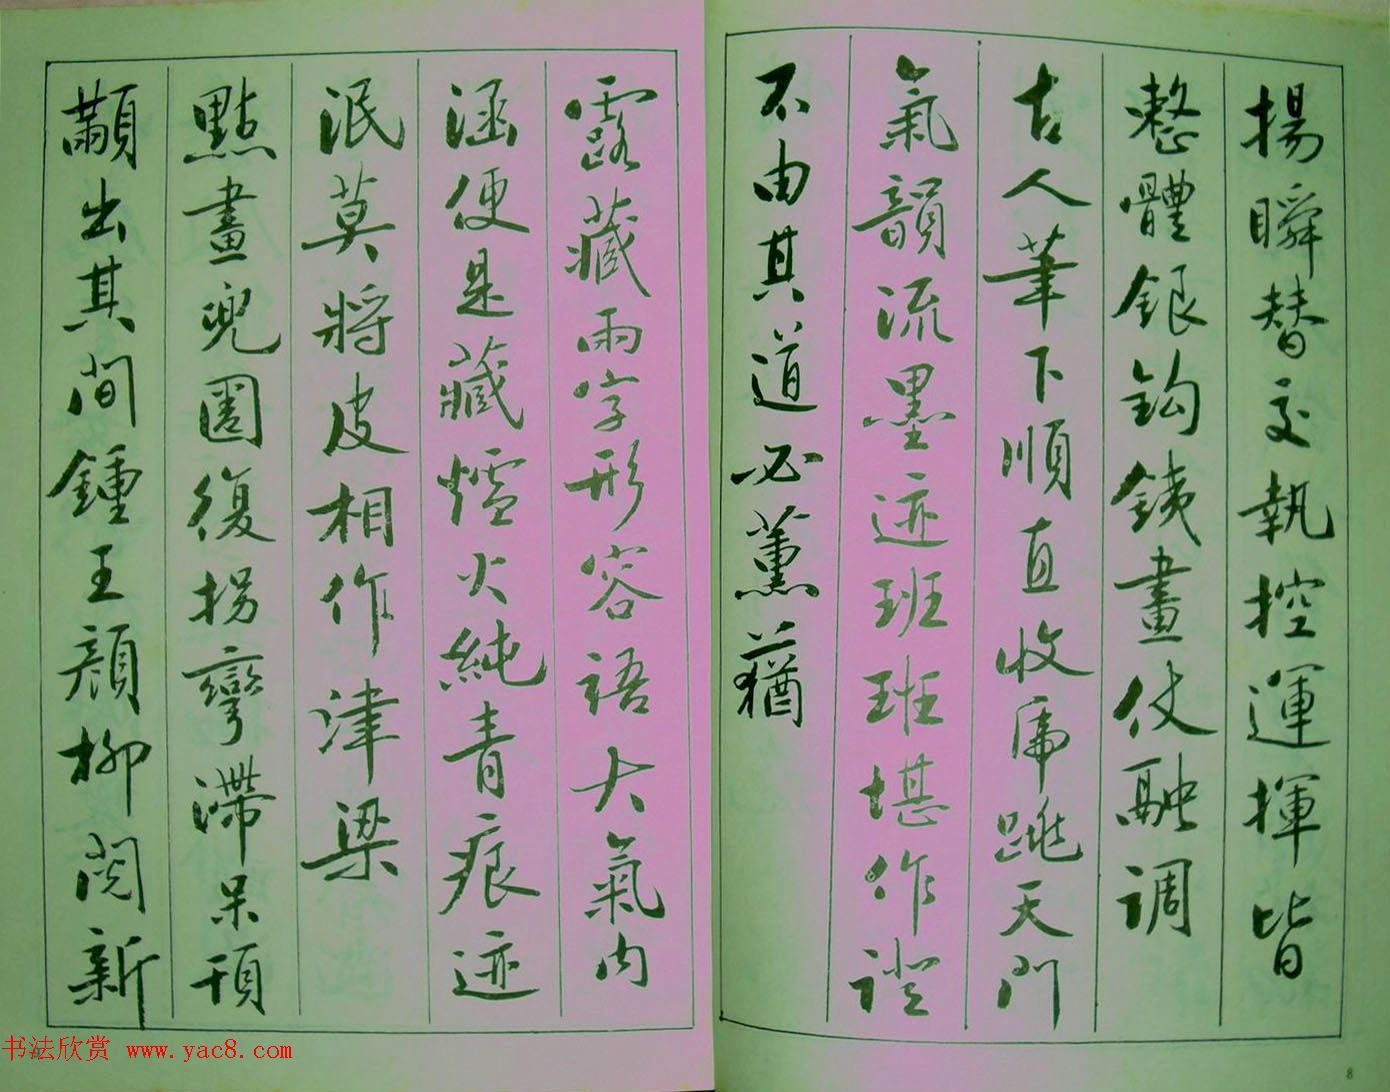 揚瞬替交執控運揮皆
整體銀鈎鐵畫仗融调
古人筆下順直收虎跳天門
氣韻流墨迹班班堪作證
不由其道必薰蕕
露藏兩字形容語大氣内
涵便是藏爐火純青痕迹
泯莫將皮相作津梁
點畫兜圈復拐彎滯呆頇
顢出其间鍾王顔柳閱新
书法欣赏 www.yac8.com
8